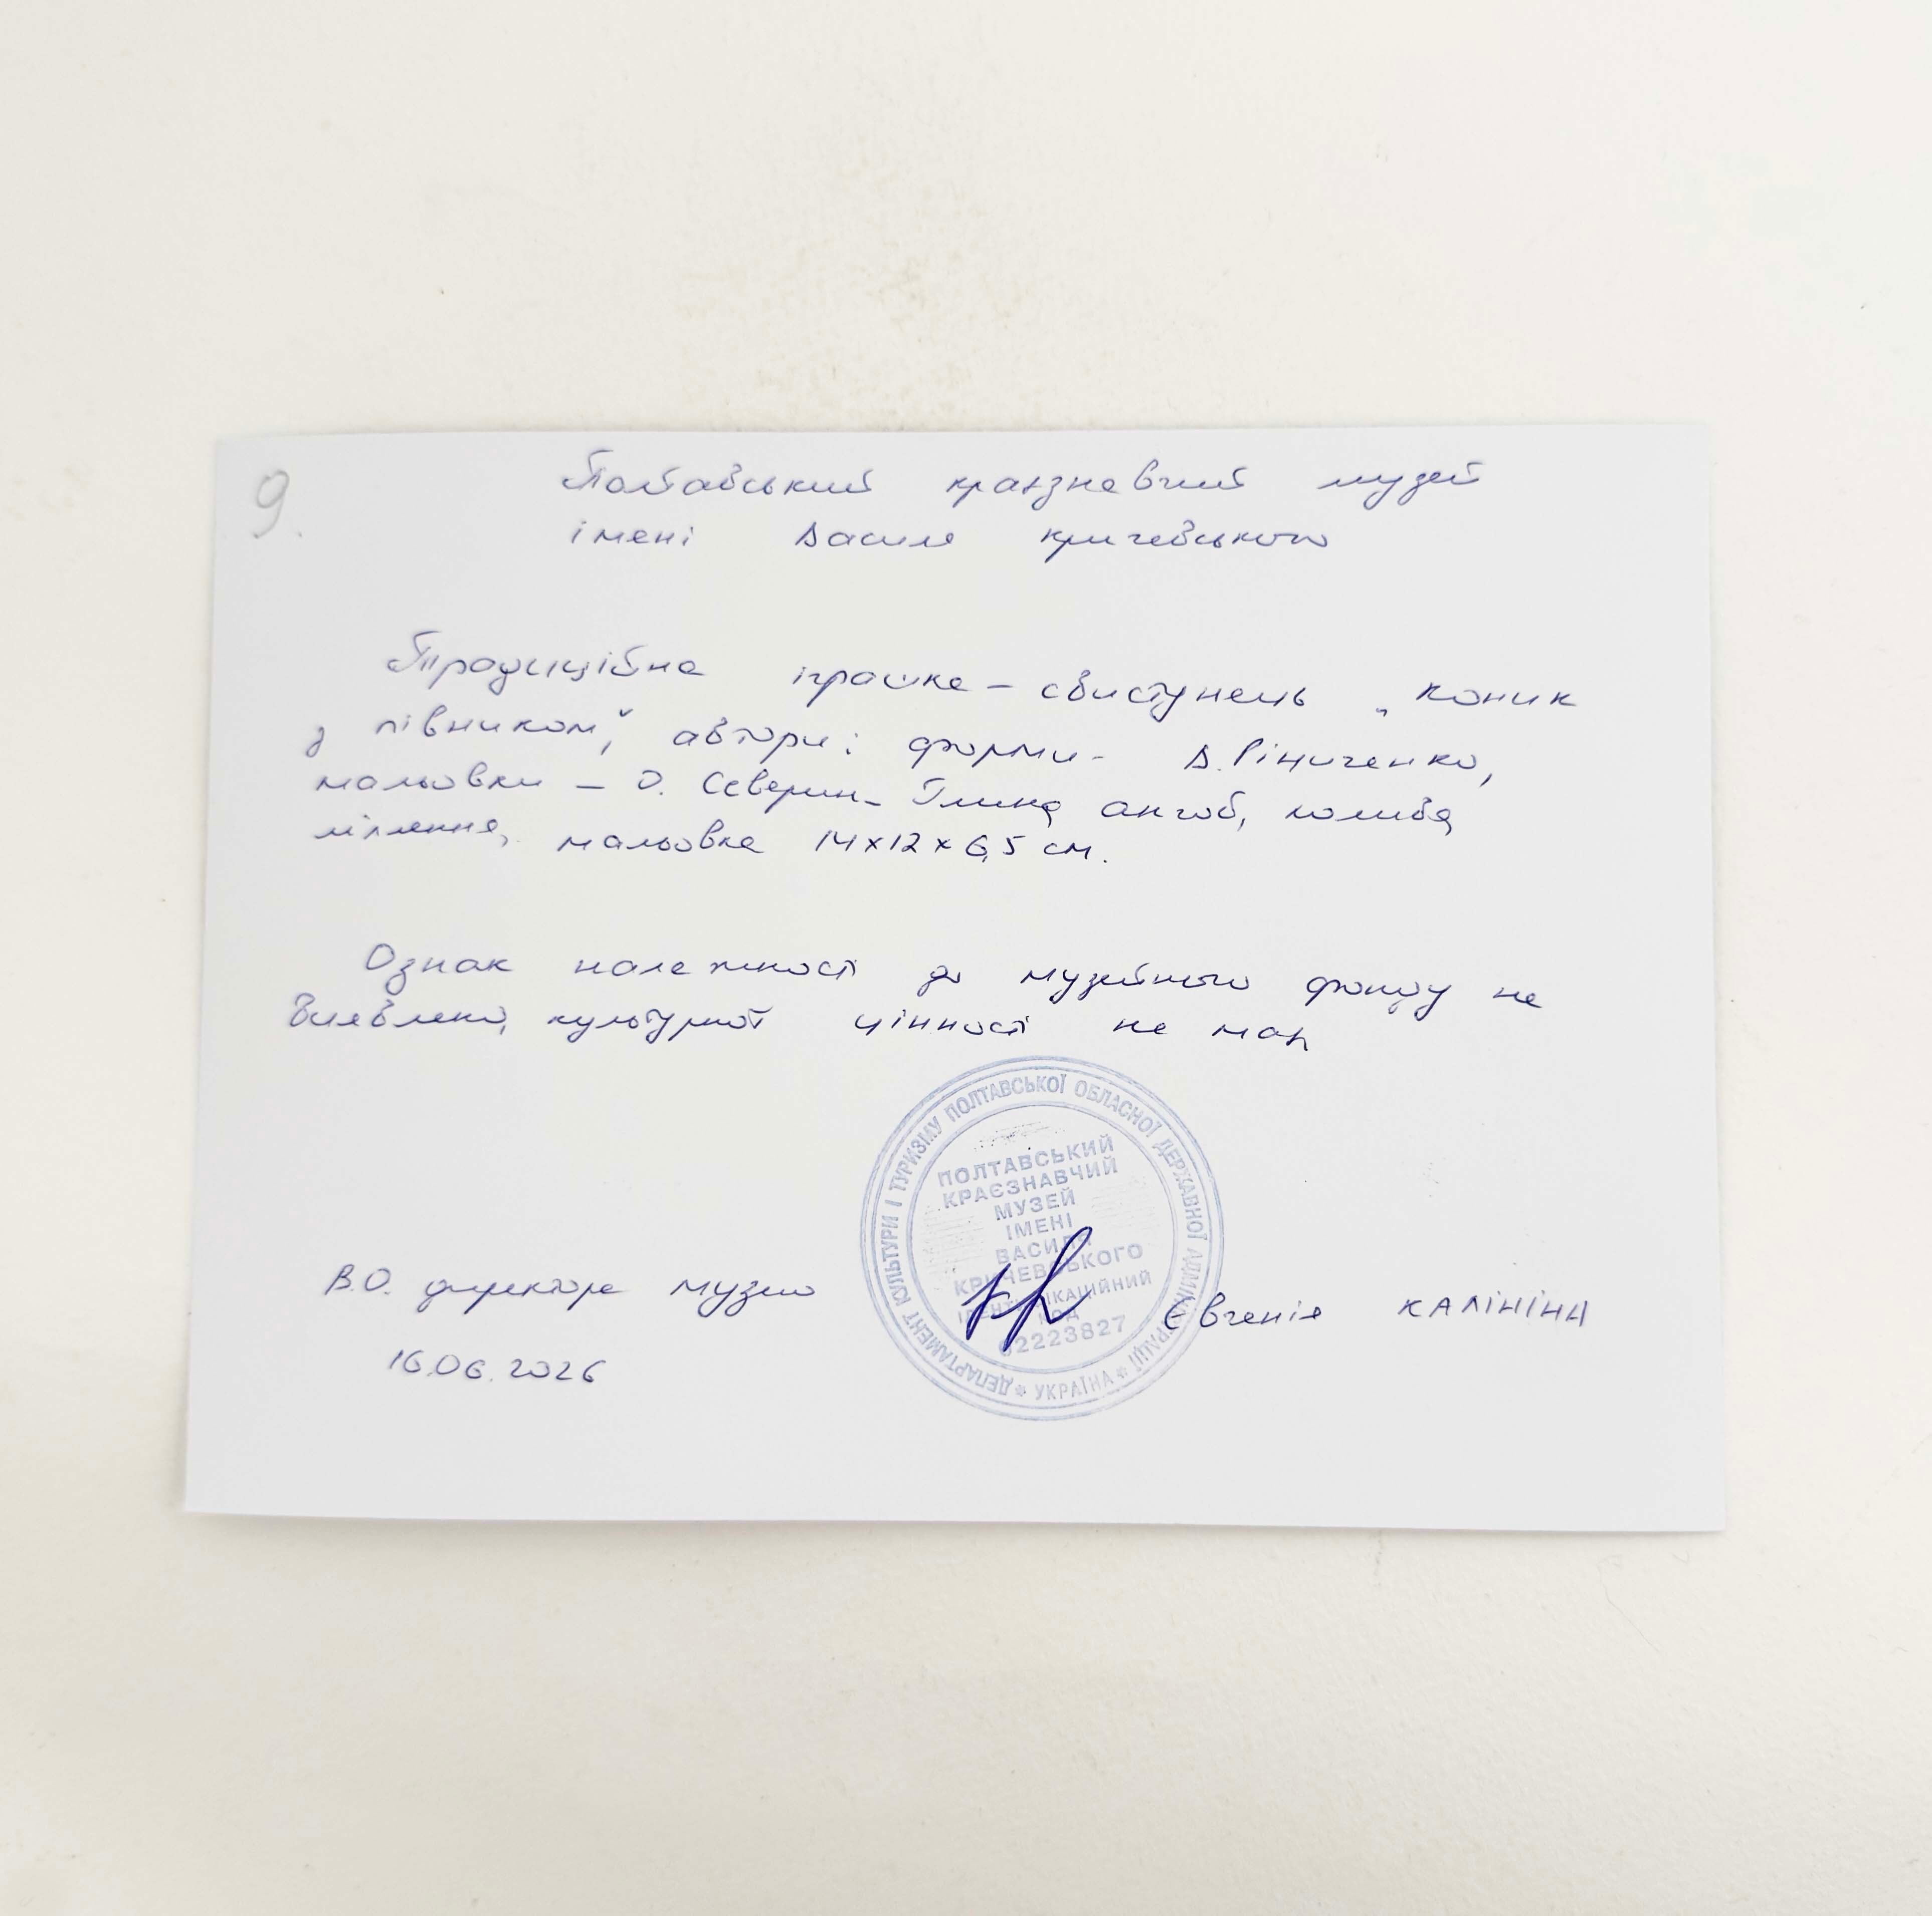 9.
Полтавський краєзнавчий музей
імені Василя Кричевського
Традиційна іграшка – свистунець „Коник
з півником", автори: форми – В. Ріниченко,
мальовки – О. Северин. Глина, ангоб, полива,
ліплення, мальовка 14х12х6,5 см.
Ознак належності до музейного фонду не
виявлено, культурної цінності не має
В.О. директора музею
Євгенія КАЛІНІНА
16.06.2026
ДЕПАРТАМЕНТ КУЛЬТУРИ І ТУРИЗМУ ПОЛТАВСЬКОЇ ОБЛАСНОЇ ДЕРЖАВНОЇ АДМІНІСТРАЦІЇ * УКРАЇНА *
ПОЛТАВСЬКИЙ
КРАЄЗНАВЧИЙ
МУЗЕЙ
ІМЕНІ
ВАСИЛЯ
КРИЧЕВСЬКОГО
ІДЕНТИФІКАЦІЙНИЙ
КОД
02223827